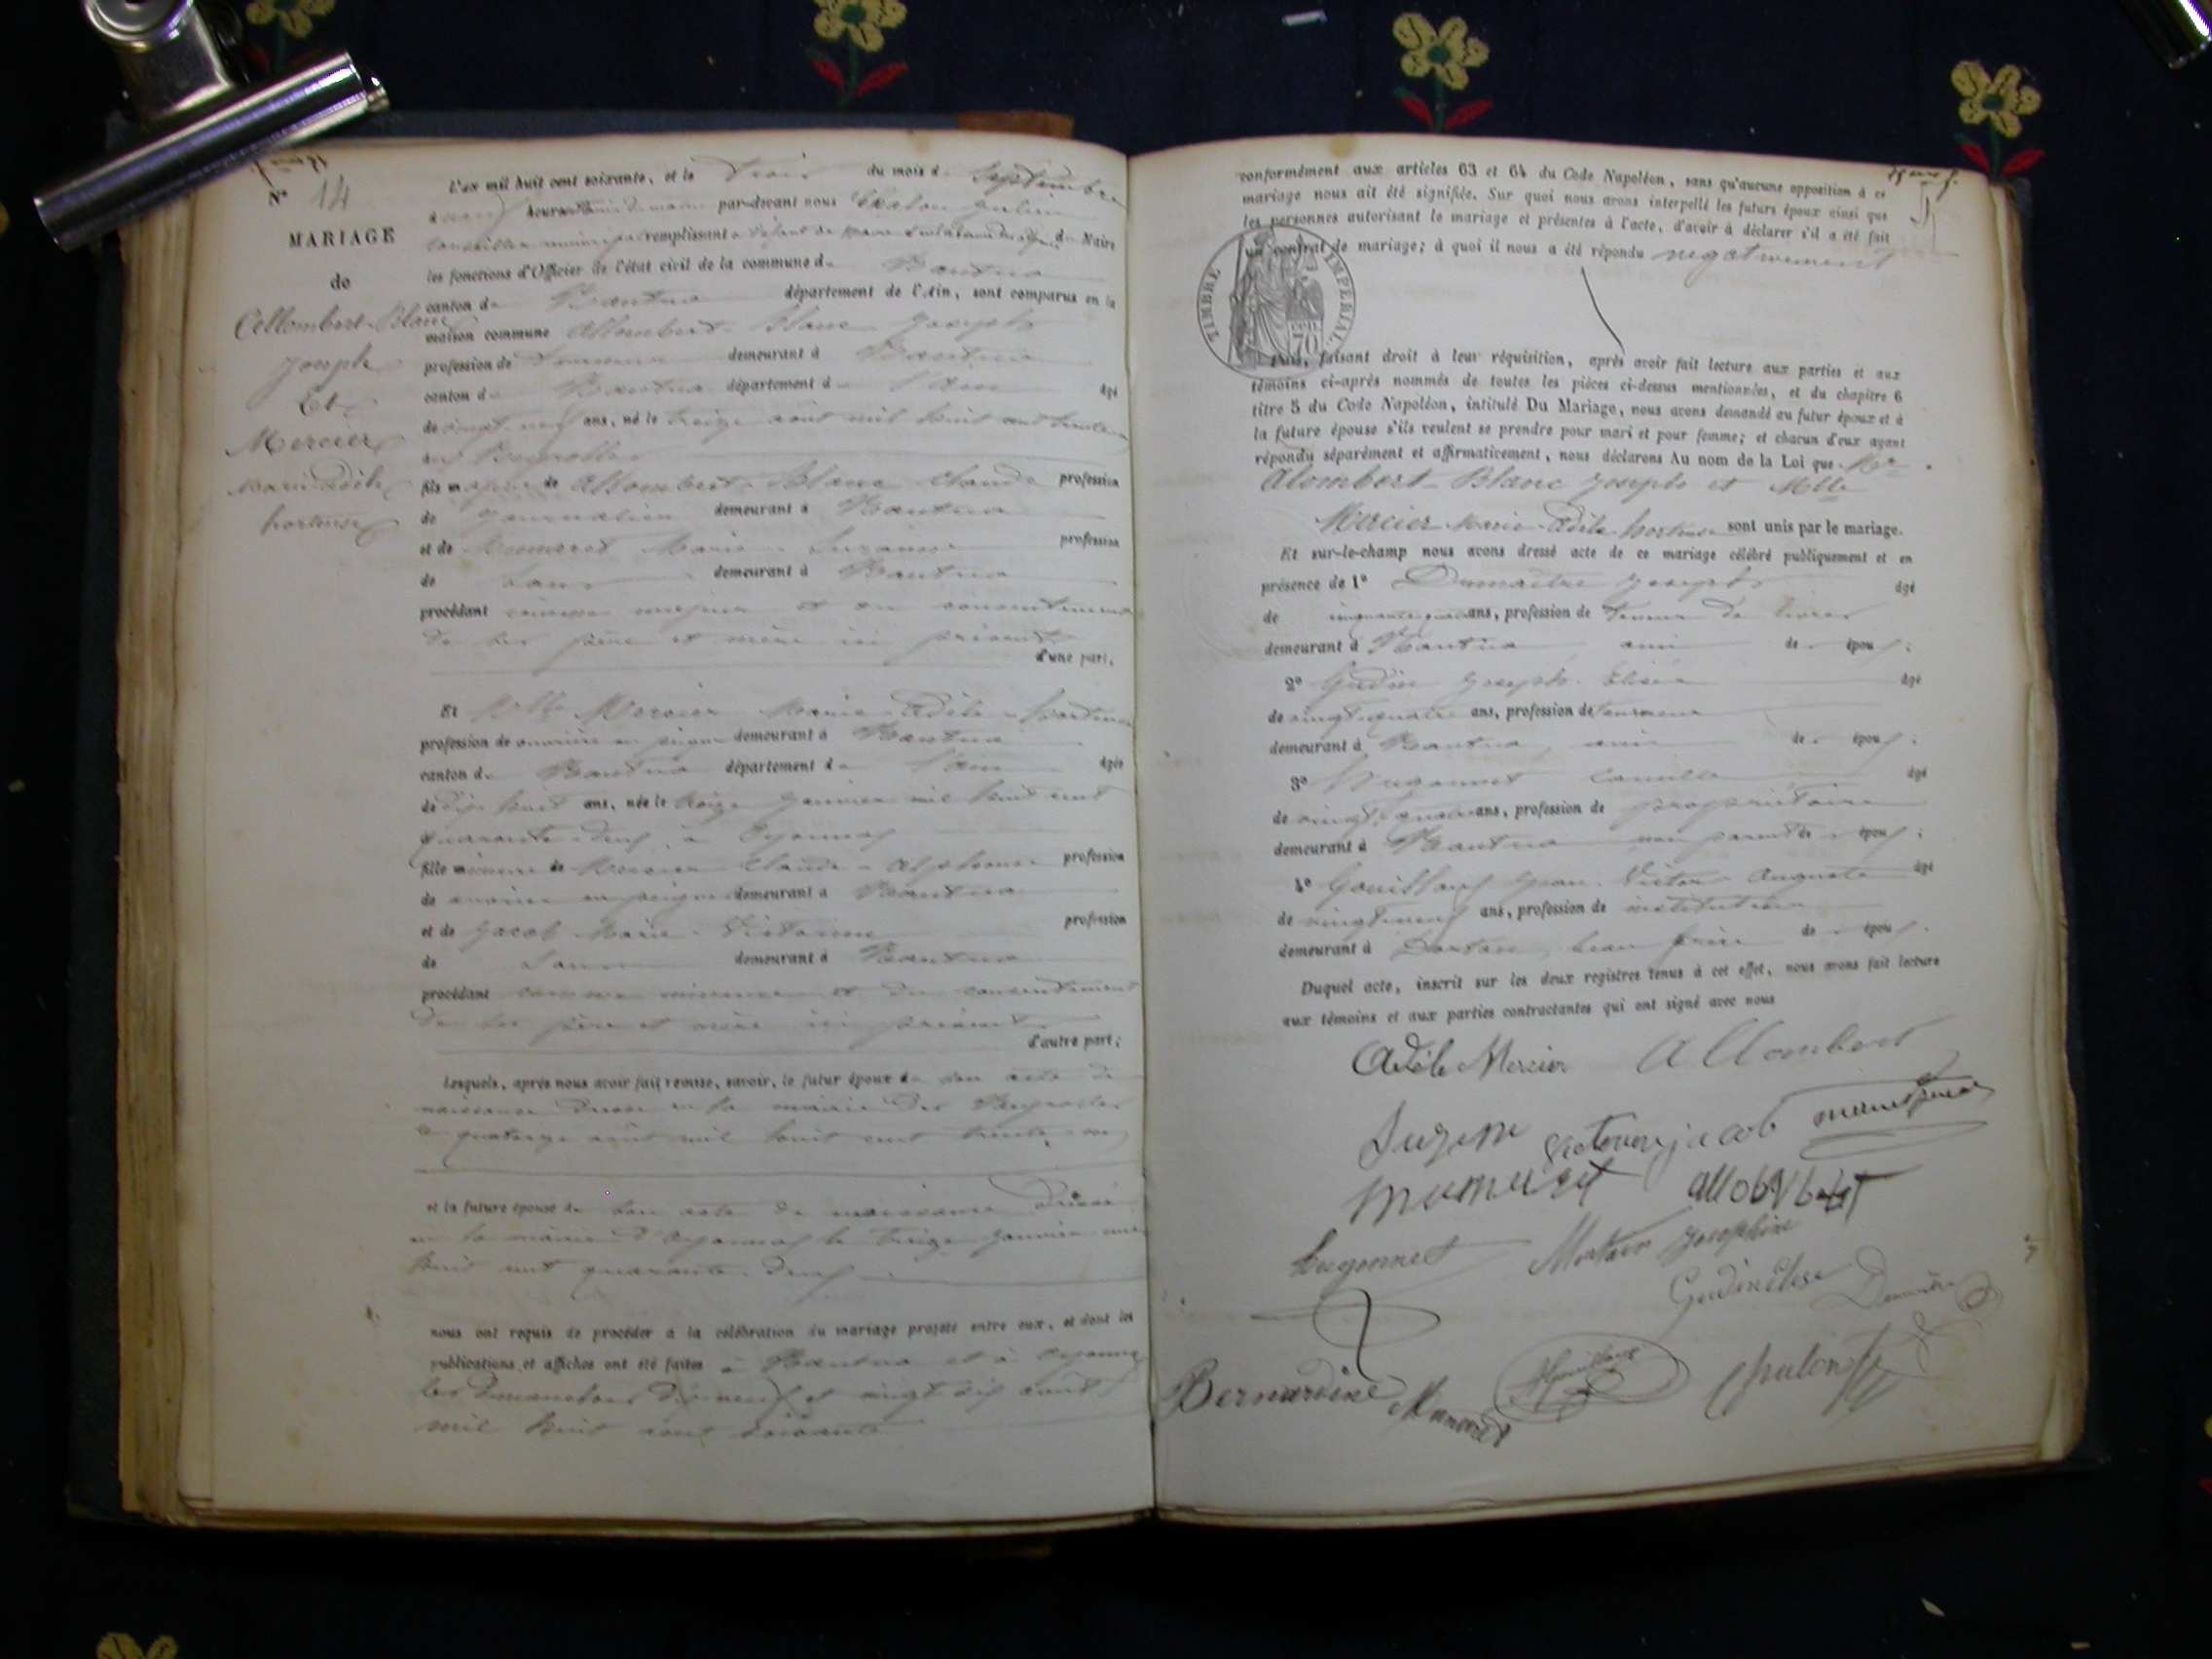 N° 14
MARIAGE
de
Allombert-Blanc
Joseph
Et
Mercier
Marie Adèle
hortense
L'an mil huit cent soixante, et le Trois du mois de Septembre
à neuf heures du matin par-devant nous Chalon Julien
Conseiller municipal remplissant du Maire
les fonctions d'Officier de l'état civil de la commune de Nantua
canton de Nantua département de l'Ain, sont comparus en la
maison commune Allombert-Blanc Joseph
profession de Tourneur demeurant à Nantua
canton de Nantua département de l'Ain âgé
de vingt neuf ans, né le treize août mil huit cent trente un
aux Neyrolles
fils majeur de Allombert-Blanc Claude profession
de journalier demeurant à Nantua
et de Mumeret Marie Suzanne profession
de sans demeurant à Nantua
procédant comme majeur et du consentement
de ses père et mère ici présents
d'une part,
Et Mlle Mercier Marie Adèle hortense
profession de ouvrière en peignes demeurant à Nantua
canton de Nantua département de l'Ain âgée
de dix huit ans, née le treize Janvier mil huit cent
quarante-deux, à Oyonnax
fille mineure de Mercier Claude-Alphonse profession
de ouvrier en peignes demeurant à Nantua
et de Jacob Marie Victorine profession
de sans demeurant à Nantua
procédant comme mineure et du consentement
de ses père et mère ici présents
d'autre part;
Lesquels, après nous avoir fait remise, savoir, le futur époux de son acte de
naissance dressé en la mairie des Neyrolles
le quatorze août mil huit cent trente-un
et la future épouse de son acte de naissance dressé
en la mairie d'Oyonnax le treize janvier mil
huit cent quarante-deux
nous ont requis de procéder à la célébration du mariage projeté entre eux, et dont les
publications et affiches ont été faites à Nantua et à Oyonnax
les dimanches dix-neuf et vingt six août
mil huit cent soixante
conformément aux articles 63 et 64 du Code Napoléon, sans qu'aucune opposition à ce
mariage nous ait été signifiée. Sur quoi nous avons interpellé les futurs époux ainsi que
les personnes autorisant le mariage et présentes à l'acte, d'avoir à déclarer s'il a été fait
un contrat de mariage; à quoi il nous a été répondu negativement
TIMBRE IMPERIAL
70
Puis, faisant droit à leur réquisition, après avoir fait lecture aux parties et aux
témoins ci-après nommés de toutes les pièces ci-dessus mentionnées, et du chapitre 6
titre 5 du Code Napoléon, intitulé Du Mariage, nous avons demandé au futur époux et à
la future épouse s'ils veulent se prendre pour mari et pour femme; et chacun d'eux ayant
répondu séparément et affirmativement, nous déclarons Au nom de la Loi que Mr
Alombert-Blanc Joseph et Mlle
Mercier Marie-Adèle hortense sont unis par le mariage.
Et sur-le-champ nous avons dressé acte de ce mariage célébré publiquement et en
présence de 1° Dumaître Joseph âgé
de ans, profession de Teneur de livres
demeurant à Nantua ami de époux;
2° Gudin Joseph Elisée âgé
de vingt-quatre ans, profession de tourneur
demeurant à Nantua, ami de époux;
3° Hugonnet Camille âgé
de vingt quatre ans, profession de propriétaire
demeurant à Nantua non parent de époux;
4° Jean Victor Auguste âgé
de vingt neuf ans, profession de instituteur
demeurant à Dortan, beau frère de époux.
Duquel acte, inscrit sur les deux registres tenus à cet effet, nous avons fait lecture
aux témoins et aux parties contractantes qui ont signé avec nous
Adèle Mercier Allombert
victorine jacob
mumeret
hugonnet Josephine
Gudin Elisée Dumaître
Bernardine Mumeret Chalon